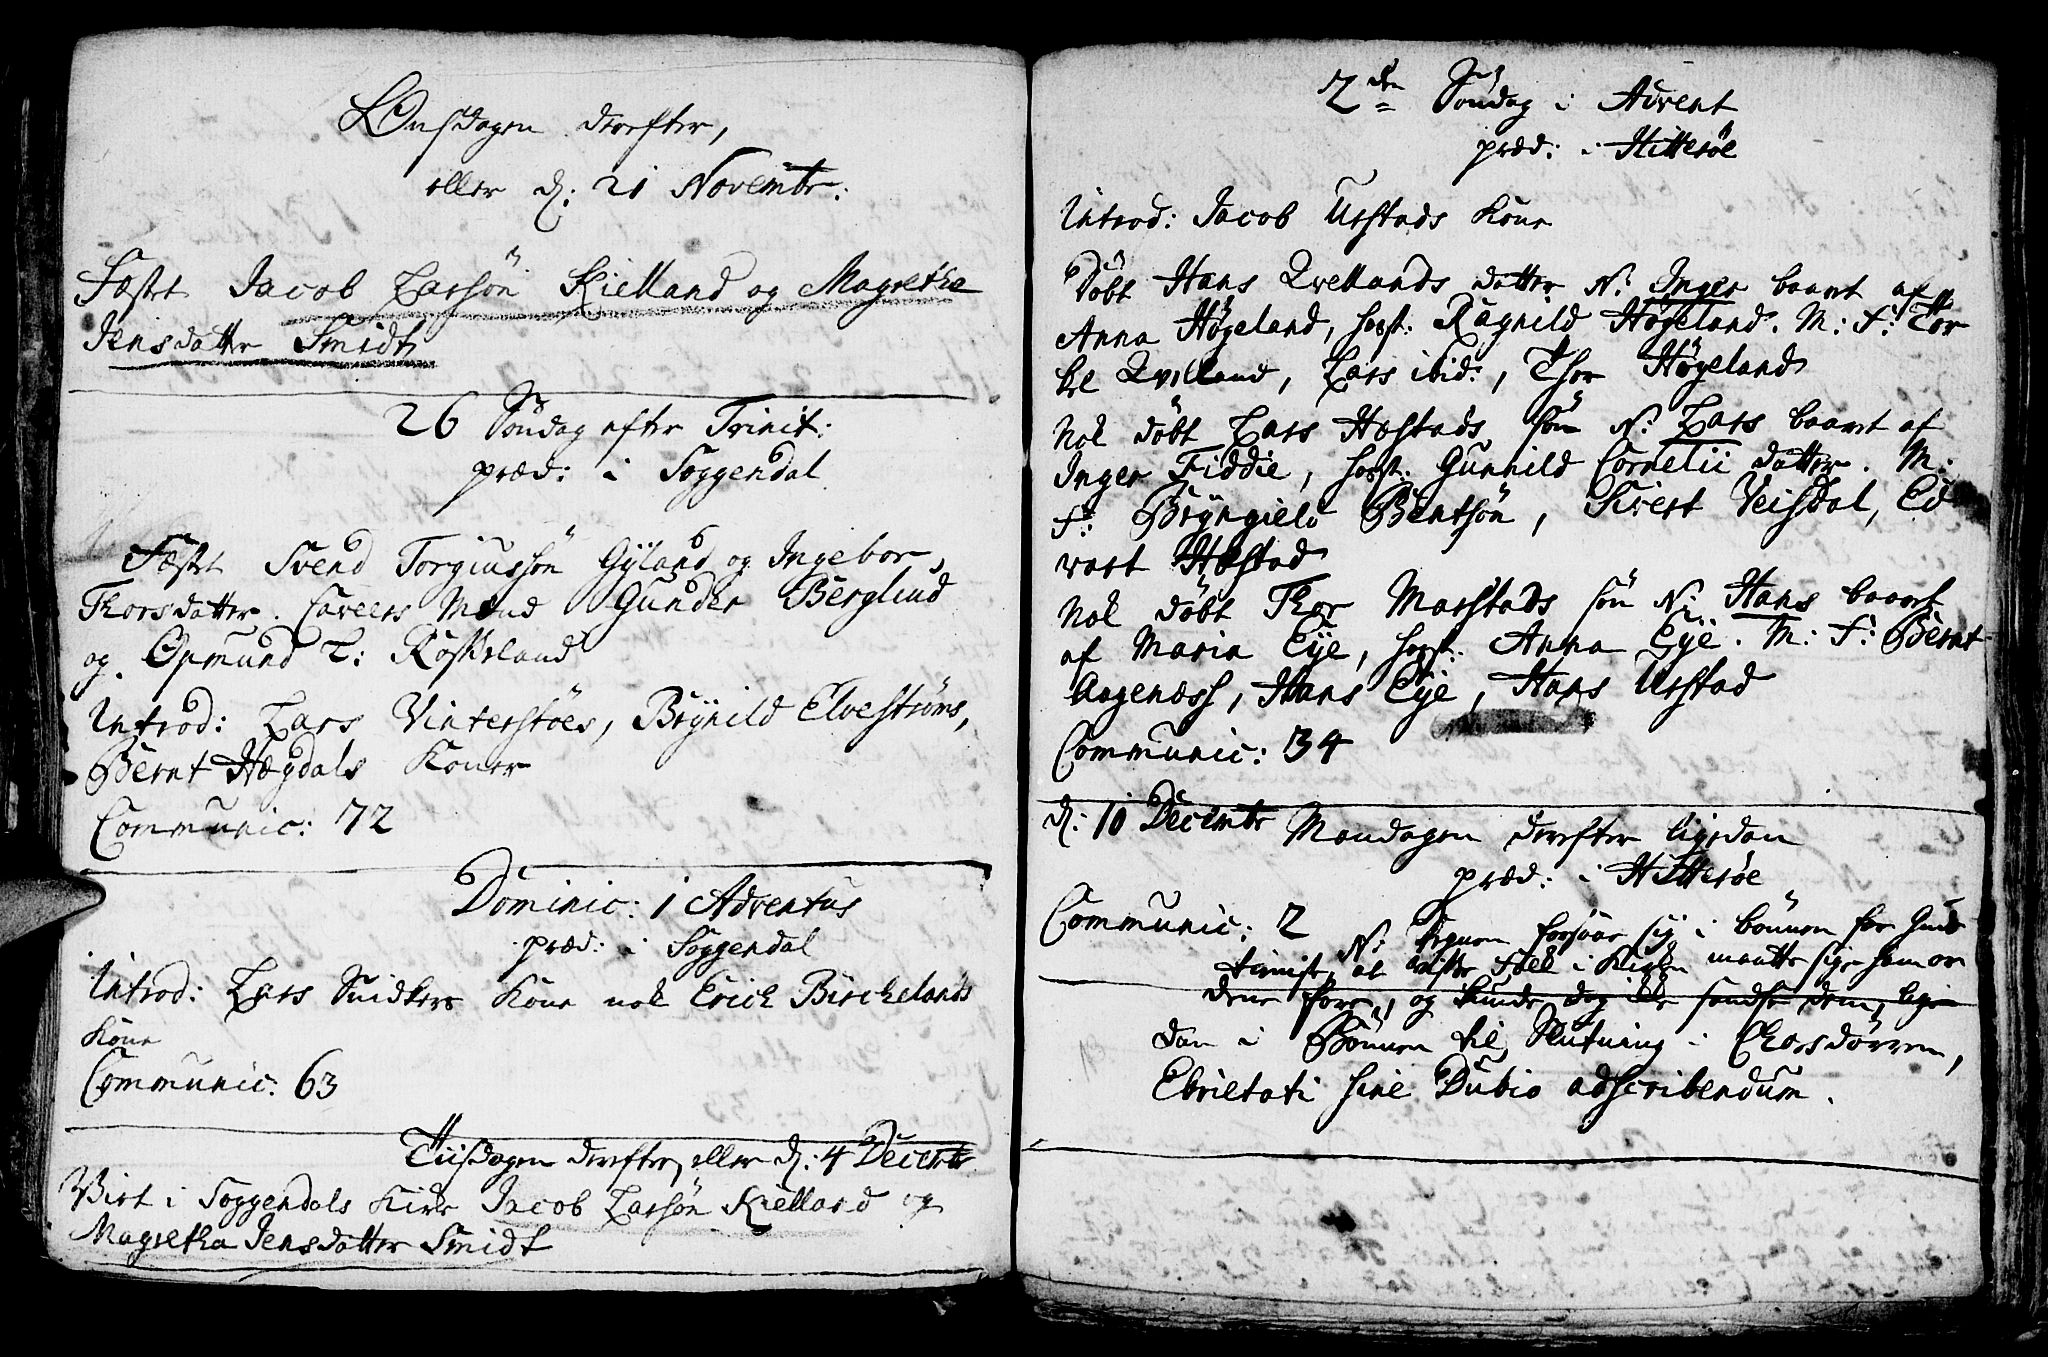 Onsdagen derefter,
eller d: 21 Novembr:
Fæstet Jacob Larsön Kielland og Magretha
Jensdatter Smidt
26 Söndag efter Trinit:
præd: i Soggendal
Fæstet Svend Torgiussön Gyland og Ingebor
Thorsdatter. Caveers Mænd Gunder Berglind
og Opmund T: Röskeland
Introd: Lars Vinterstöes, Brynild Elvestrøms,
Bernt Hægdals Koner
Communic: 72
Dominic: 1 Adventus
præd: i Soggendal
Introd: Lars Snidkers Kone nok Erich Birchelands
Kone
Communic: 63
Tiisdagen derefter, eller d: 4 Decembr
Viet i Soggendals Kirke Jacob Larsön Kielland og
Magretha Jensdatter Smidt
2den Söndag i Advent
præd: i Hitteröe
Introd: Jacob Urstads Kone
Döbt Hans Qvellands datter N: Inger baaret af
Anna Högeland, hoost: Ragnild Högeland. M: F: Tor
kel Qvelland, Lars ibid:, Thor Högeland
Nok döbt Lars Hostads sön N: Lars baaret af
Inger Fiddie, hoost: Gunnild Cornelii datter. M:
F: Bryngield Bentsön, Sivert Veisdal, Ed
vart Hostad
Nok döbt Thor Marstads sön N: Hans baaret
af Maria Eye, hoost: Anna Eye. M: F: Bernt
Aagenæss, Hans Eye, Hans Urstad
Communic: 34
d: 10 Decembr Mandagen derefter ligedan
præd: i Hitteröe
Communic: 2
N: forsaae sig i bönnen for Guds
at Folk i Kirken maatte sige ham or
dene fore, og kunde dog ikke sandse dem, lige
dan i Bönnen til Slutning i Chorsdörren,
Ebrietati sine Dubio adscribendum.